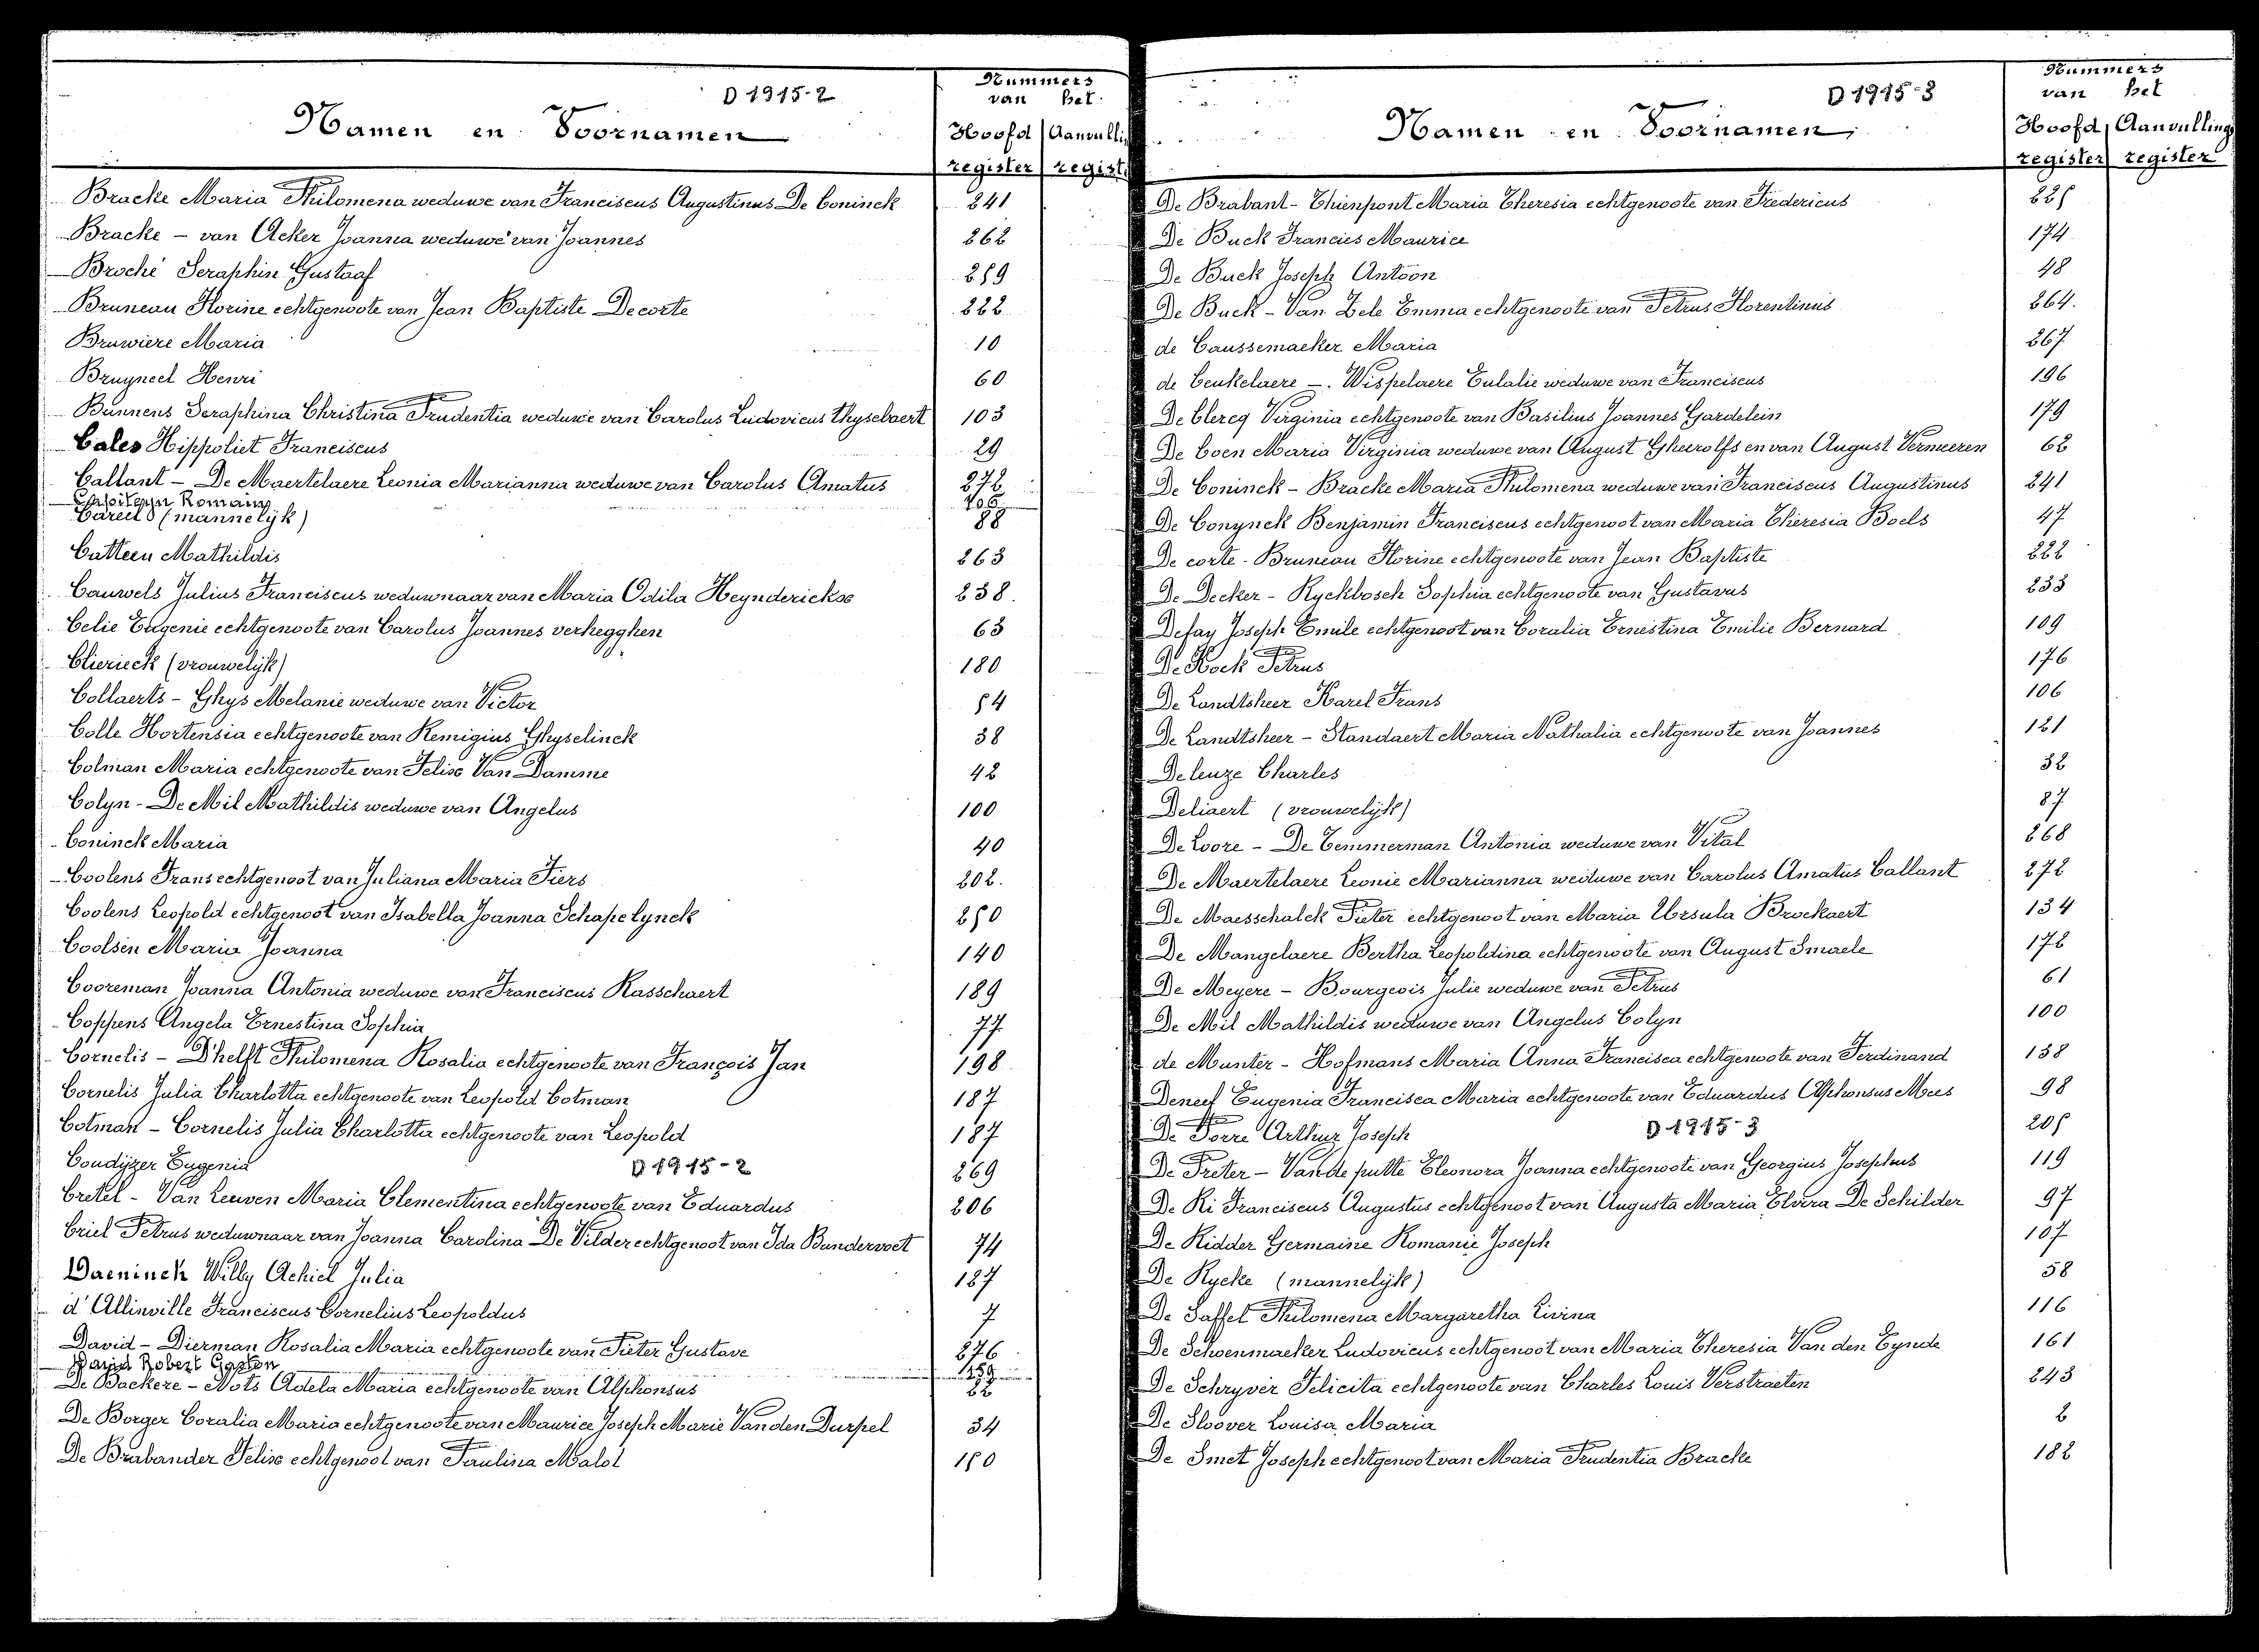 D 1915-2
Nummers
van het
Namen en Voornamen
Hoofd Aanvulli
register regist
Bracke Maria Philomena weduwe van Franciscus Augustinus De Coninck 241
Bracke - van Acker Joanna weduwe van Joannes 262
Broché Seraphin Gustaaf 259
Bruneau Florine echtgenoote van Jean Baptiste Decorte 222
Bruwiere Maria 10
Bruyneel Henri 60
Bunnens Seraphina Christina Prudentia weduwe van Carolus Ludovicus Thysebaert 103
Cales Hippoliet Franciscus 29
Callant - De Maertelaere Leonia Marianna weduwe van Carolus Amatus 272
Capiteyn Romain
Careels (mannelijk) 88
Catteeu Mathildis 263
Cauwels Julius Franciscus weduwnaar van Maria Odila Heynderickx 238.
Celie Eugenie echtgenoote van Carolus Joannes verhegghen 63
Clierieck (vrouwelijk) 180
Collaerts - Ghys Melanie weduwe van Victor 54
Colle Hortensia echtgenoote van Remigius Ghyselinck 38
Colman Maria echtgenoote van Felix Van Damme 42
Colyn - De Mil Mathildis weduwe van Angelus 100
Coninck Maria 40
Coolens Frans echtgenoot van Juliana Maria Fiers 202.
Coolens Leopold echtgenoot van Isabella Joanna Schapelynck 250
Coolsen Maria Joanna 140
Cooreman Joanna Antonia weduwe van Franciscus Rasschaert 189
Coppens Angela Ernestina Sophia 77
Cornelis - D'helft Philomena Rosalia echtgenoote van François Jan 198
Cornelis Julia Charlotta echtgenoote van Leopold Cotman 187
Cotman - Cornelis Julia Charlotta echtgenoote van Leopold 187
Coudijzer Eugenia 269
D 1915-2
Cretel - Van Leuven Maria Clementina echtgenoote van Eduardus 206
Criel Petrus weduwnaar van Joanna Carolina De Vilder echtgenoot van Ida Bundervoet 74
Daeninck Willy Achiel Julia 187
d'Allinville Franciscus Cornelius Leopoldus 7
David - Dierman Rosalia Maria echtgenoote van Pieter Gustave 276
David Robert Gaston 159
De Backere - Nots Adela Maria echtgenoote van Alphonsus 22
De Borger Coralia Maria echtgenoote van Maurice Joseph Marie Van den Durpel 34
De Brabander Felix echtgenoot van Paulina Malot 150
D 1915-3
Nummers
van het
Namen en Voornamen
Hoofd Aanvulling
register register
De Brabant - Thienpont Maria Theresia echtgenoote van Fredericus 225
De Buck Francies Maurice 174
De Buck Joseph Antoon 48
De Buck - Van Zele Emma echtgenoote van Petrus Florentinus 264.
de Caussemaeker Maria 267
de Ceukelaere - Wispelaere Eulalie weduwe van Franciscus 196
De Clercq Virginia echtgenoote van Basilius Joannes Gardelein 179
De Coen Maria Virginia weduwe van August Gheerolfs en van August Vermeeren 62
De Coninck - Bracke Maria Philomena weduwe van Franciscus Augustinus 241
De Conynck Benjamin Franciscus echtgenoot van Maria Theresia Boels 47
De corte - Bruneau Florine echtgenoote van Jean Baptiste 222
De Decker - Ryckbosch Sophia echtgenoote van Gustavus 233
Defay Joseph Emile echtgenoot van Coralia Ernestina Emilie Bernard 109
De Kock Petrus 176
De Landtsheer Karel Frans 106
De Landtsheer - Standaert Maria Nathalia echtgenoote van Joannes 121
Deleuze Charles 32
Deliaert (vrouwelijk) 87
De Loore - De Temmerman Antonia weduwe van Vital 268
De Maertelaere Leonie Marianna weduwe van Carolus Amatus Callant 272
De Maesschalck Pieter echtgenoot van Maria Ursula Brockaert 134
De Mangelaere Bertha Leopoldina echtgenoote van August Smaele 172
De Meyere - Bourgeois Julie weduwe van Petrus 61
De Mil Mathildis weduwe van Angelus Colyn 100
de Munter - Hofmans Maria Anna Francisca echtgenoote van Ferdinand 138
Deneef Eugenia Francisca Maria echtgenoote van Eduardus Alphonsus Mees 98
De Porre Arthur Joseph 205
D 1915-3
De Preter - Van de putte Eleonora Joanna echtgenoote van Georgius Josephus 119
De Ri Franciscus Augustus echtgenoot van Augusta Maria Elvira De Schilder 97
De Ridder Germaine Romanie Joseph 107
De Rycke (mannelijk) 58
De Saffel Philomena Margaretha Livina 116
De Schoenmaeker Ludovicus echtgenoot van Maria Theresia Van den Eynde 161
De Schryver Felicita echtgenoote van Charles Louis Verstraeten 243
De Sloover Louisa Maria 2
De Smet Joseph echtgenoot van Maria Prudentia Bracke 182